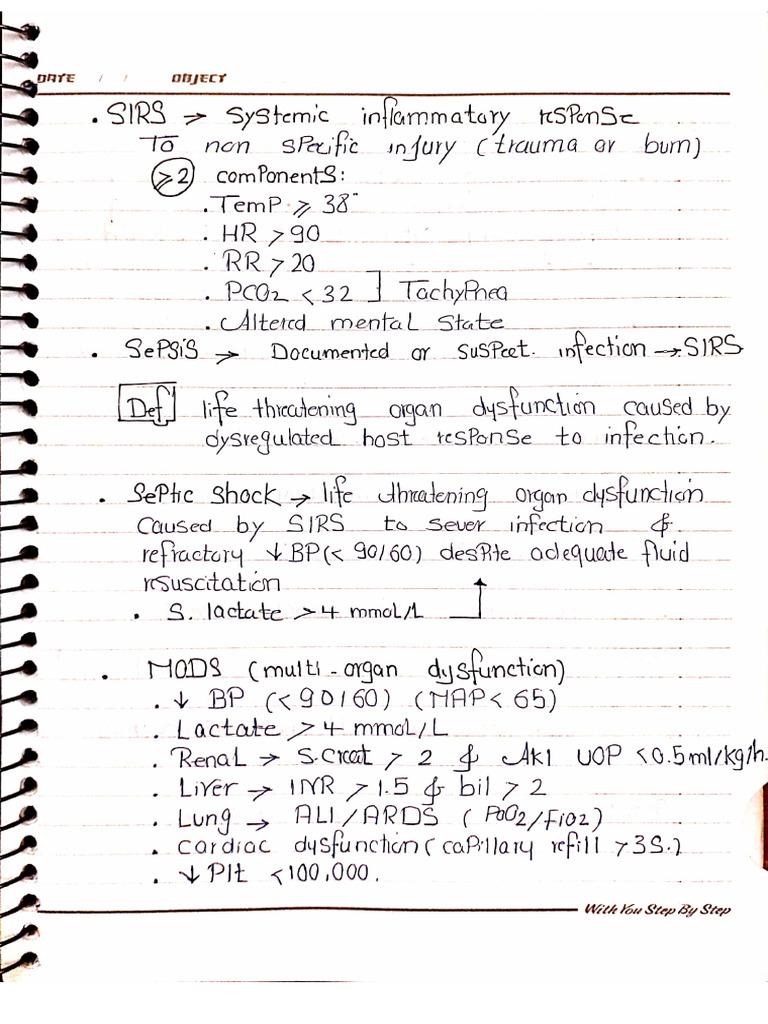 DATE / / OBJECT
. SIRS → systemic inflammatory response
To non specific injury (trauma or burn)
≥2 components:
. Temp ≥ 38°
. HR > 90
. RR > 20
. PCO2 < 32 ] Tachypnea
. Altered mental state
. Sepsis → Documented or suspect. infection → SIRS
Def life threatening organ dysfunction caused by
dysregulated host response to infection.
. Septic shock → life threatening organ dysfunction
caused by SIRS to sever infection &
refractory ↓ BP (< 90/60) despite adequate fluid
resuscitation
. S. lactate > 4 mmol/L
. MODS (multi-organ dysfunction)
. ↓ BP (< 90/60) (MAP < 65)
. Lactate > 4 mmol/L
. Renal → S.creat > 2 & AKI UOP < 0.5 ml/kg/h.
. Liver → INR > 1.5 & bil > 2
. Lung → ALI/ARDS (PaO2/FiO2)
. cardiac dysfunction (capillary refill > 3S.)
. ↓ Plt < 100,000.
With You Step By Step